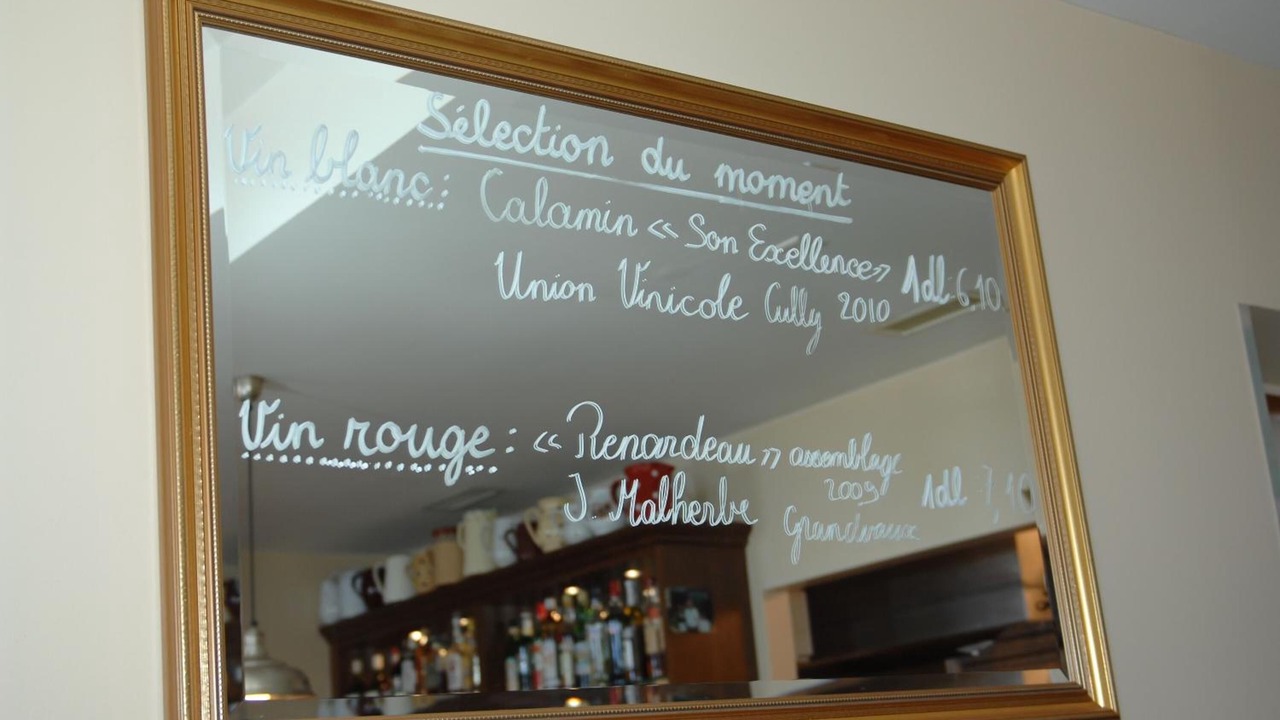 Sélection du moment
Vin blanc: Calamin « Son Excellence » 1dl 6.10
Union Vinicole Cully 2010
Vin rouge: « Renardeau » assemblage
J. Malherbe 2009 1dl 7,10
Grandvaux